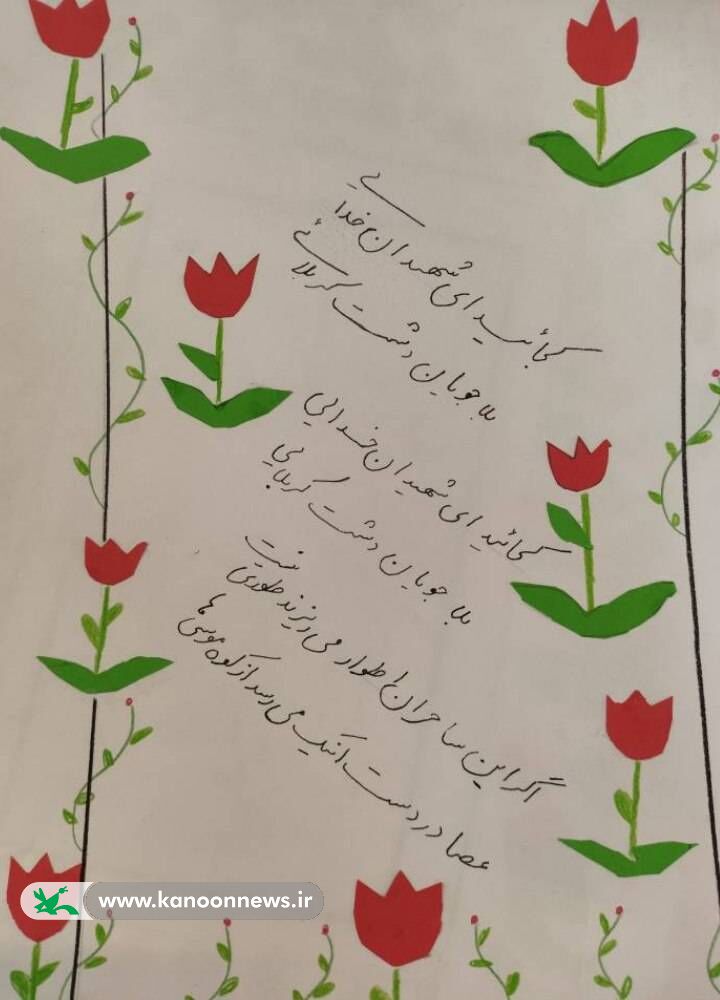 کجائید ای شهیدان خدایی
بلا جویان دشت کربلائی
کجائید ای شهیدان خدایی
بلا جویان دشت کربلایی
اگر این ساحران اطوار می ریزند طوری نیست
عصا در دست اینک می رسد از کوه موسی ها
www.kanoonnews.ir